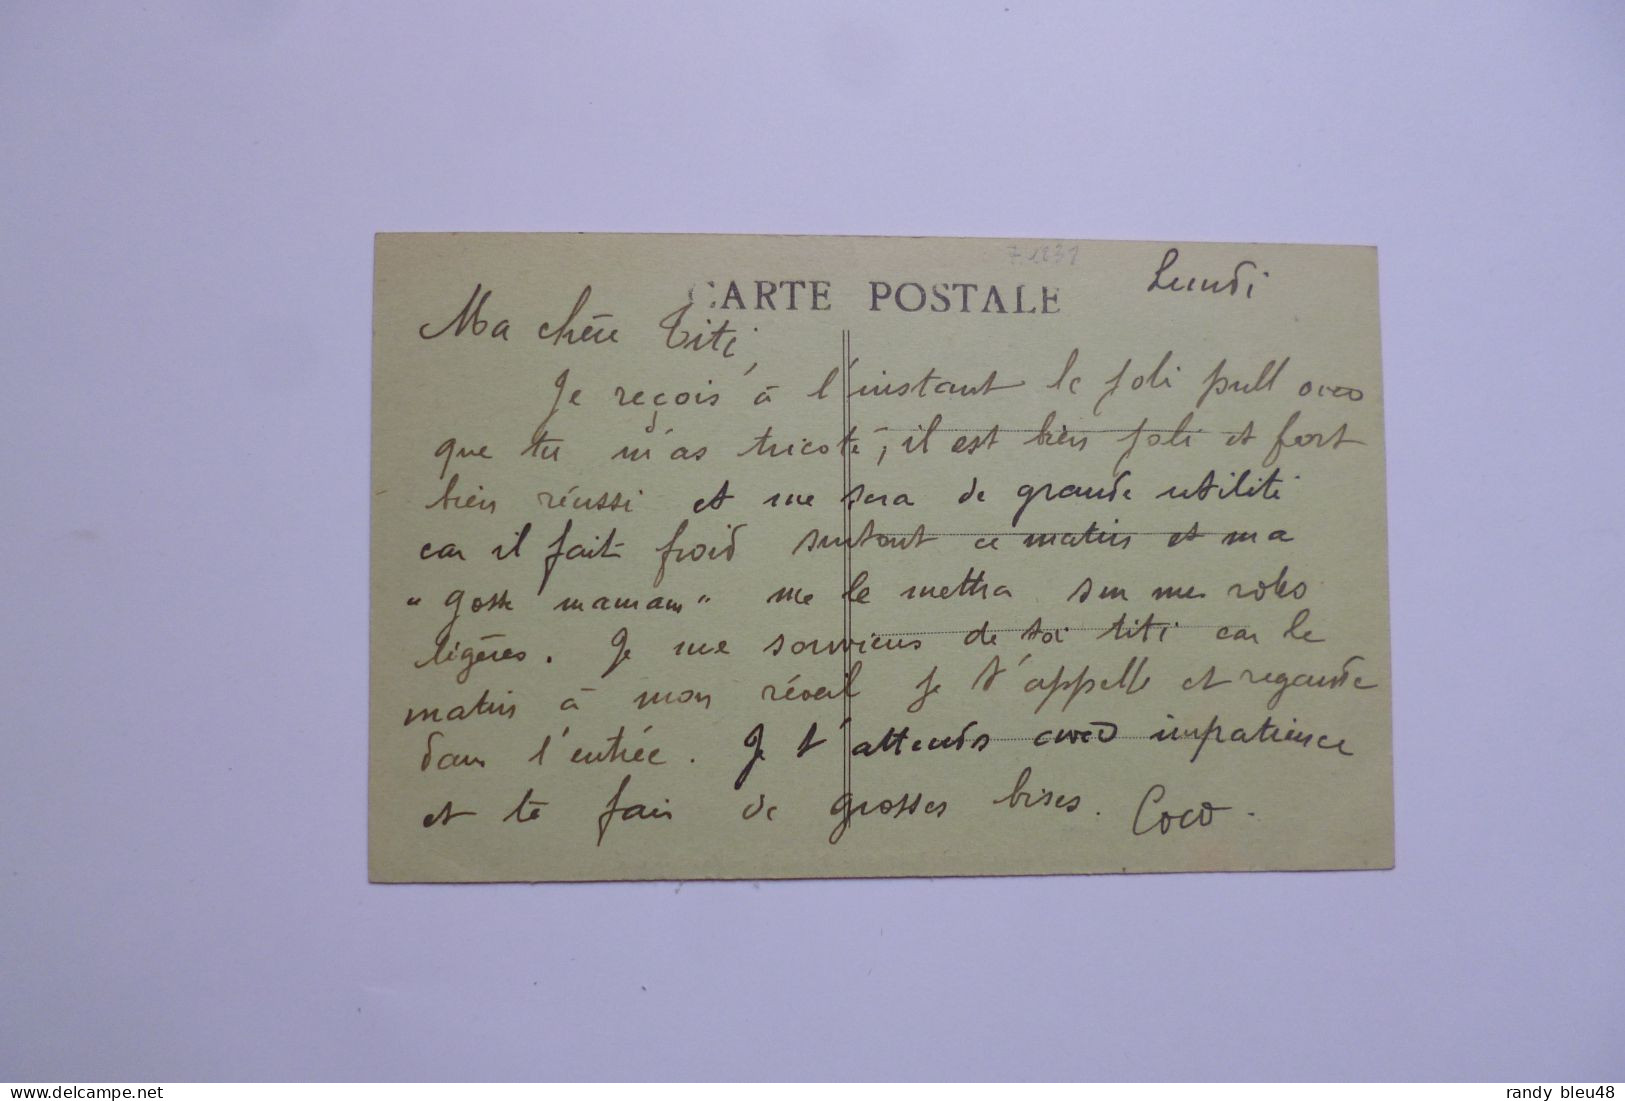 Lundi
CARTE POSTALE
Ma chère Titi,
Je reçois à l'instant le joli pull over
que tu m'as tricoté, il est bien joli et fort
bien réussi et me sera de grande utilité
car il fait froid surtout ce matin et ma
"gosse maman" me le mettra sur mes robes
légères. Je me souviens de toi titi car le
matin à mon réveil je t'appelle et regarde
dans l'entrée. Je t'attends avec impatience
et te fais de grosses bises. Coco.
delcampe.net
randy bleu48